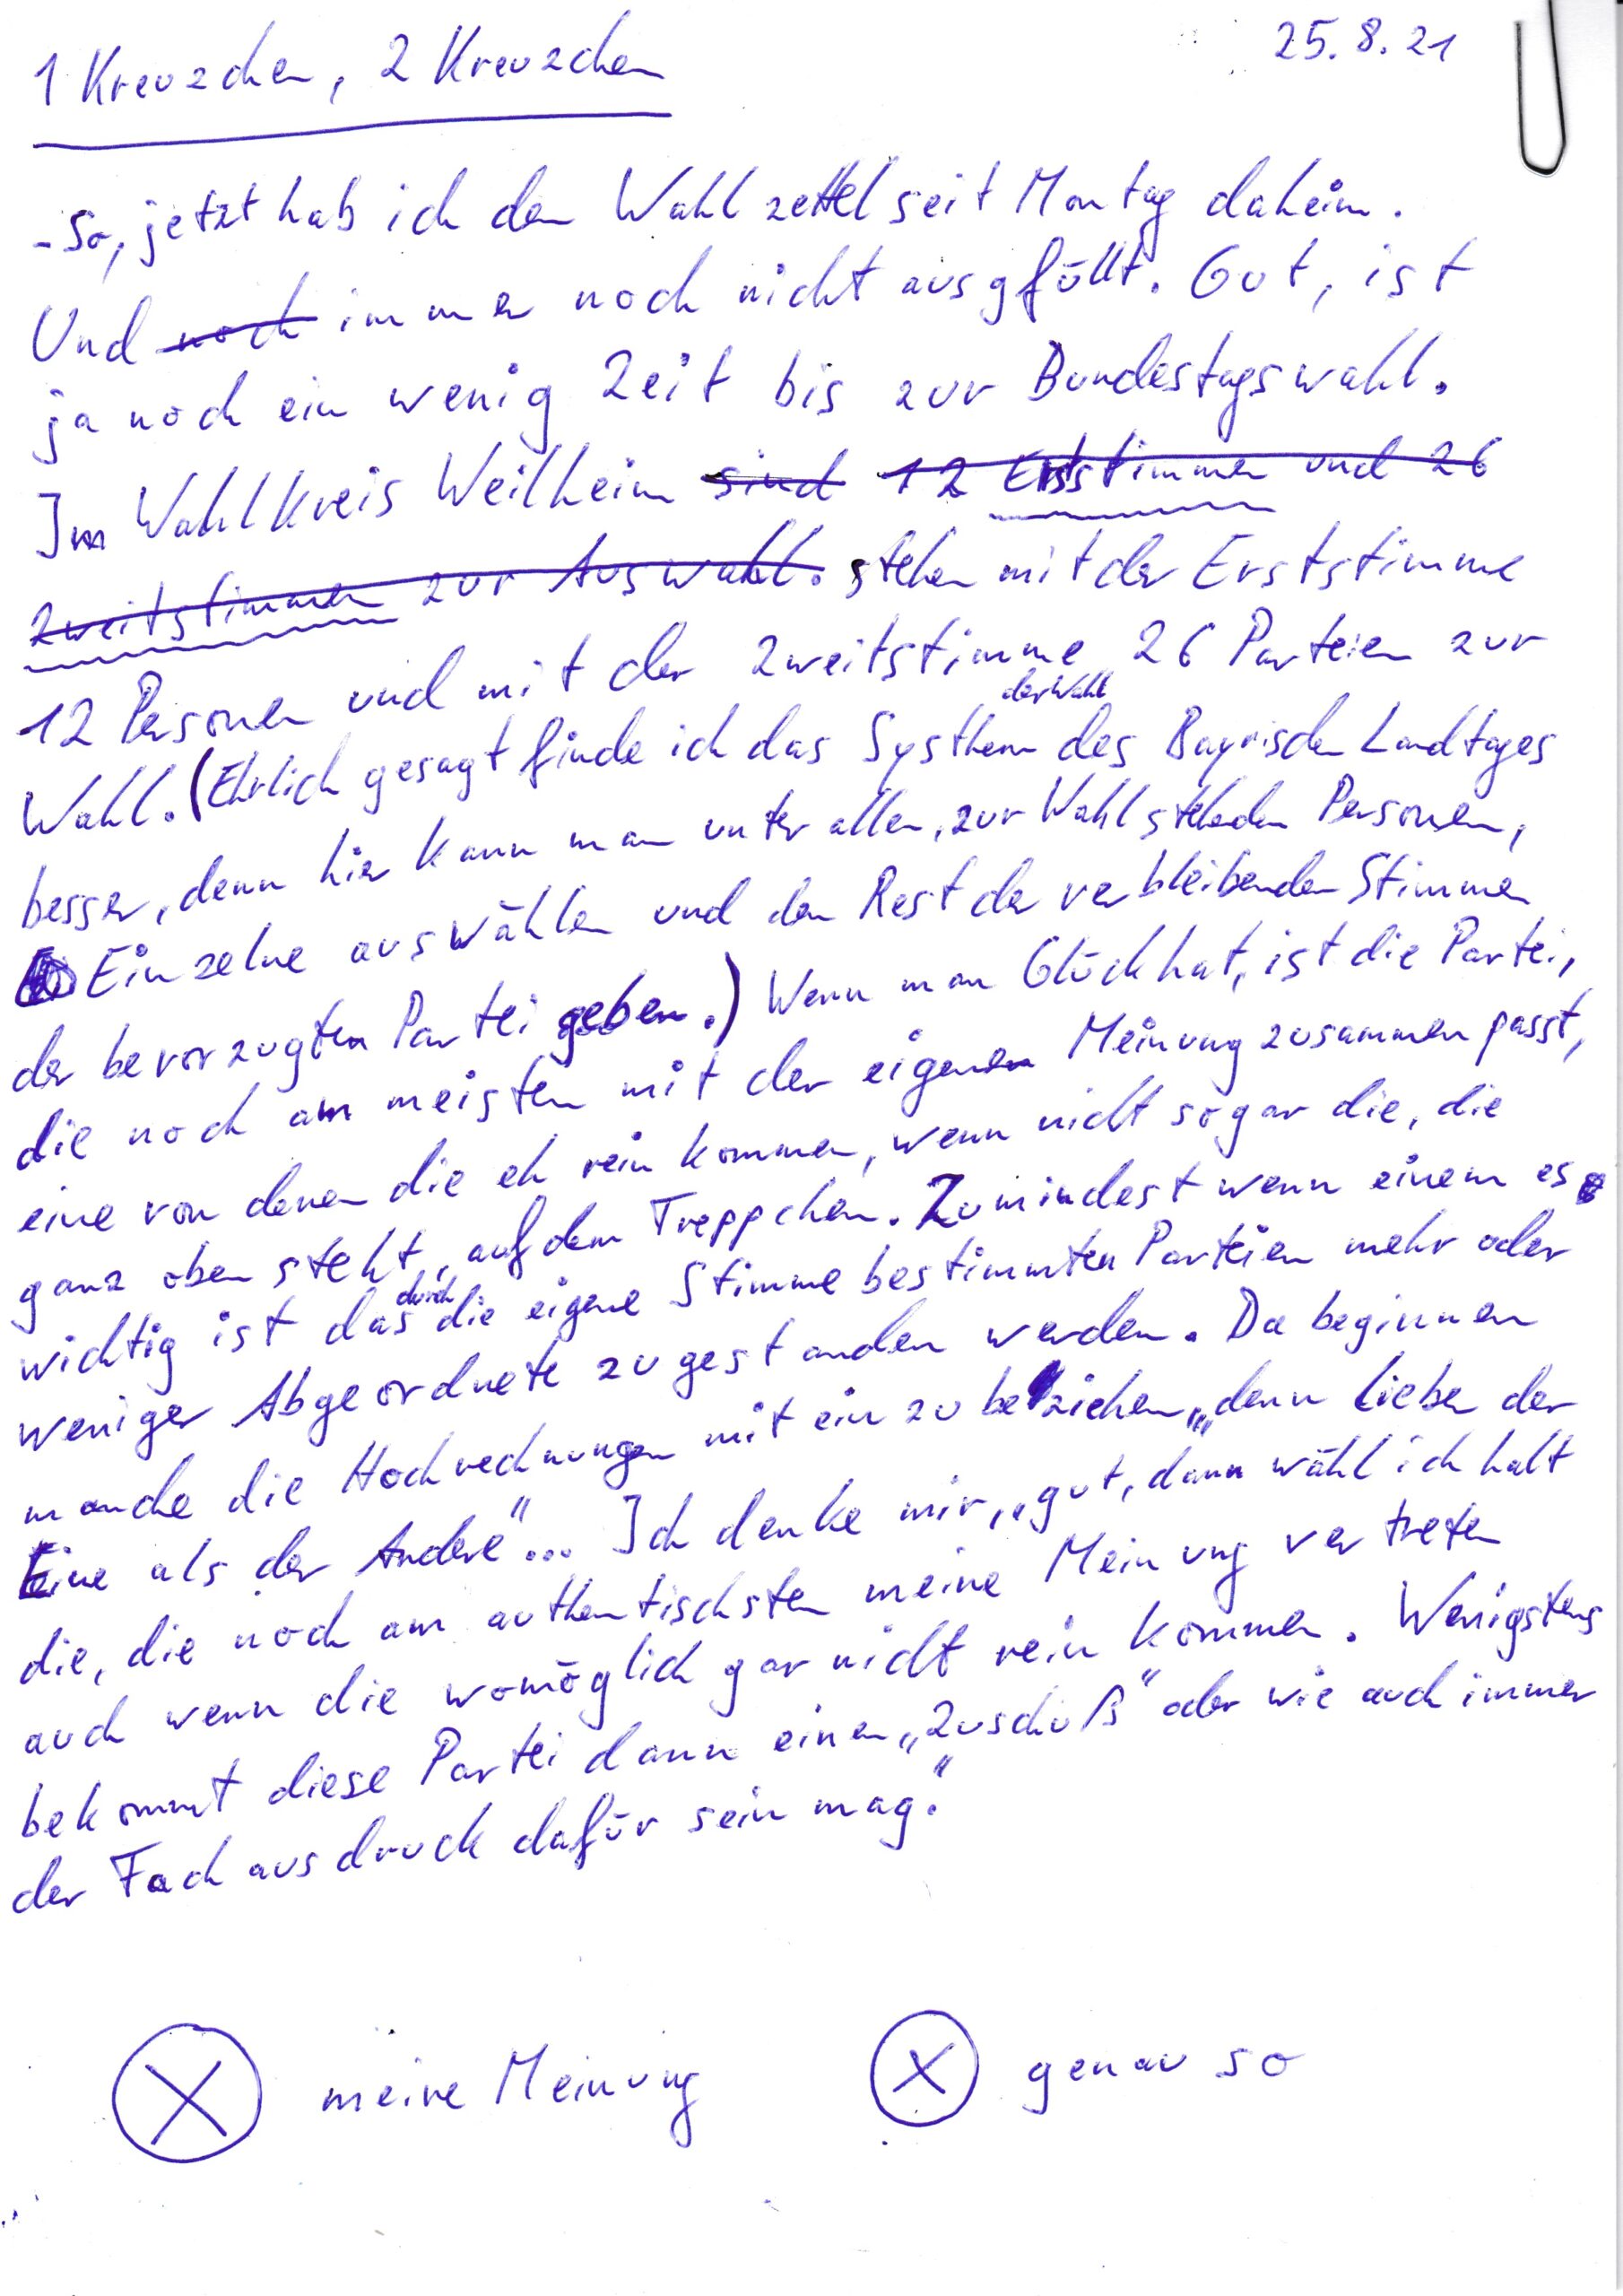 1 Kreuzchen, 2 Kreuzchen
25.8.21
- So, jetzt hab ich den Wahlzettel seit Montag daheim.
Und noch immer noch nicht ausgfüllt. Gut, ist
ja noch ein wenig Zeit bis zur Bundestagswahl.
Im Wahlkreis Weilheim sind 12 Erststimmen und 26
Zweitstimmen zur Auswahl. stehen mit der Erststimme
12 Personen und mit der Zweitstimme 26 Parteien zur
der Wahl
Wahl. (Ehrlich gesagt finde ich das Systhem des Bayrischen Landtages
besser, denn hier kann man unter allen, zur Wahl stehenden Personen,
Einzelne auswählen und den Rest der verbleibenden Stimmen
der bevorzugten Partei geben.) Wenn man Glück hat, ist die Partei,
die noch am meisten mit der eigenen Meinung zusammen passt,
eine von denen die eh rein kommen, wenn nicht sogar die, die
ganz oben steht, auf dem Treppchen. Zumindest wenn einem es
durch
wichtig ist das die eigene Stimme bestimmten Parteien mehr oder
weniger Abgeordnete zugestanden werden. Da beginnen
manche die Hochrechnungen mit ein zu beziehen, „denn lieber der
Eine als der Andere"... Ich denke mir, „gut, dann wähl ich halt
die, die noch am authentischsten meine Meinung vertreten
auch wenn die womöglich gar nicht rein kommen. Wenigstens
bekommt diese Partei dann einen „Zuschuß" oder wie auch immer
der Fachausdruck dafür sein mag."
meine Meinung
genau so